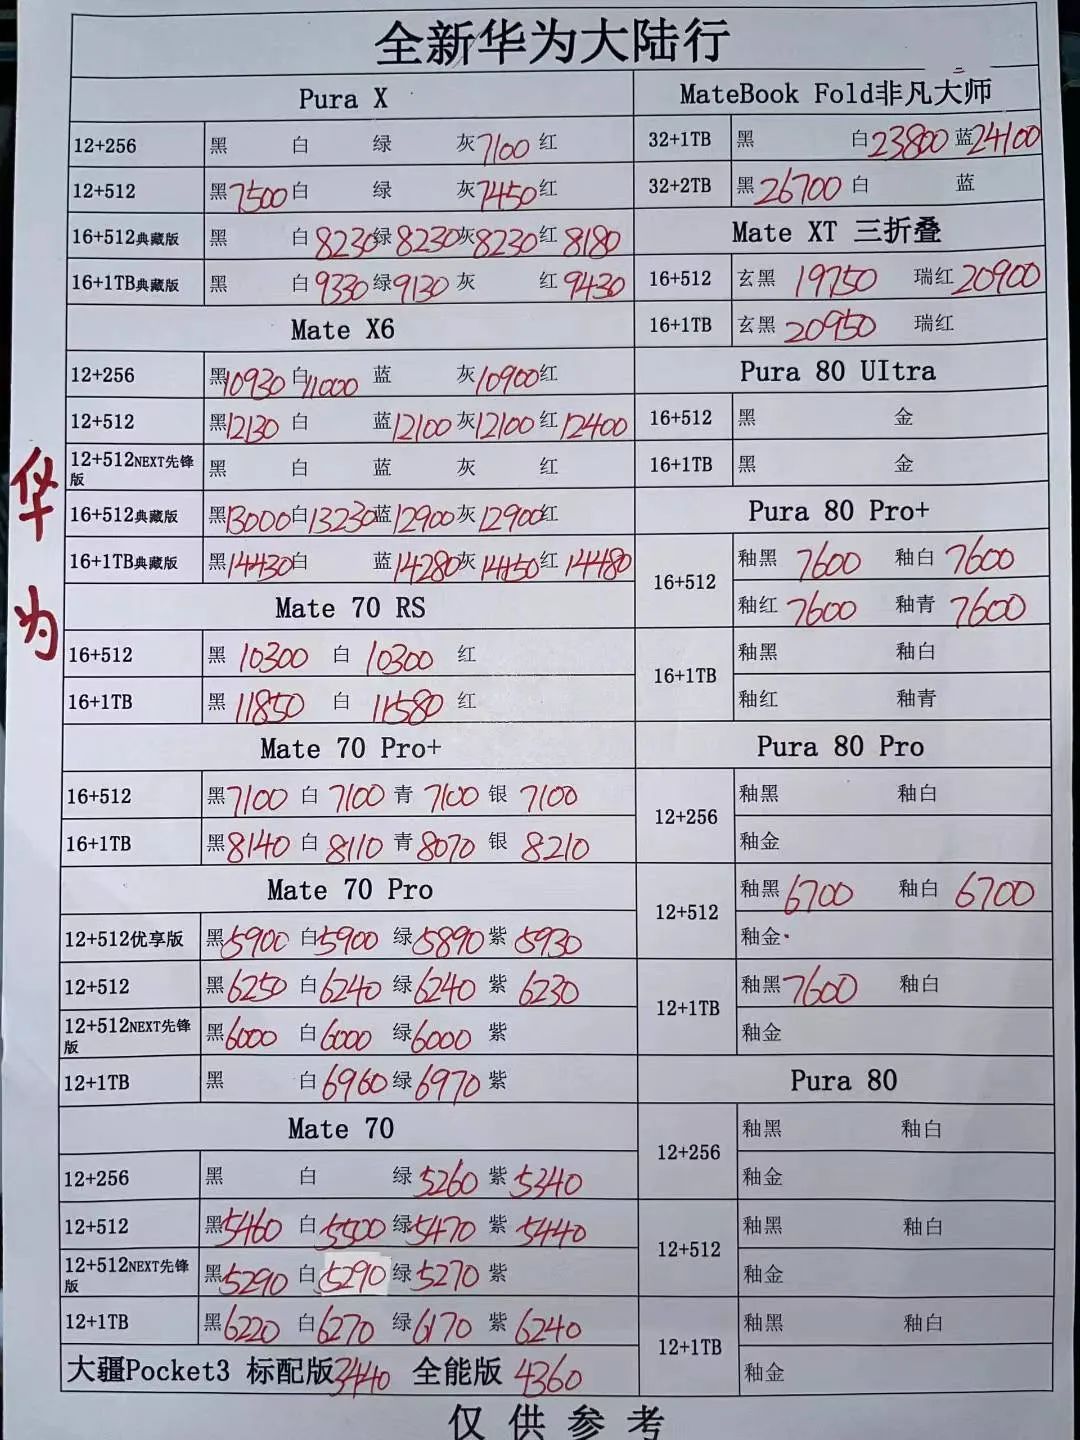 全新华为大陆行
Pura X
12+256 黑 白 绿 灰7100 红
12+512 黑7500 白 绿 灰7450 红
16+512典藏版 黑 白8230 绿8230 灰8230 红8180
16+1TB典藏版 黑 白9330 绿9130 灰 红9430
Mate X6
12+256 黑10930 白11000 蓝 灰10900 红
12+512 黑12130 白 蓝12100 灰12100 红12400
12+512NEXT先锋版 黑 白 蓝 灰 红
16+512典藏版 黑13000 白13230 蓝12900 灰12900 红
16+1TB典藏版 黑14430 白 蓝14280 灰14450 红14480
Mate 70 RS
16+512 黑 10300 白 10300 红
16+1TB 黑 11850 白 11580 红
Mate 70 Pro+
16+512 黑7100 白 7100 青 7100 银 7100
16+1TB 黑8140 白 8110 青 8070 银 8210
Mate 70 Pro
12+512优享版 黑5900 白5900 绿5890 紫 5930
12+512 黑6250 白6240 绿6240 紫 6230
12+512NEXT先锋版 黑6000 白6000 绿6000 紫
12+1TB 黑 白6960 绿6970 紫
Mate 70
12+256 黑 白 绿5260 紫5340
12+512 黑5460 白 5500 绿5470 紫 5440
12+512NEXT先锋版 黑5290 白5290 绿5270 紫
12+1TB 黑6220 白6270 绿6170 紫6240
大疆Pocket3 标配版3440 全能版 4360
MateBook Fold非凡大师
32+1TB 黑 白23800 蓝24100
32+2TB 黑26700 白 蓝
Mate XT 三折叠
16+512 玄黑 19750 瑞红20900
16+1TB 玄黑20950 瑞红
Pura 80 UItra
16+512 黑 金
16+1TB 黑 金
Pura 80 Pro+
16+512 釉黑 7600 釉白 7600
釉红7600 釉青 7600
16+1TB 釉黑 釉白
釉红 釉青
Pura 80 Pro
12+256 釉黑 釉白
釉金
12+512 釉黑6700 釉白 6700
釉金
12+1TB 釉黑7600 釉白
釉金
Pura 80
12+256 釉黑 釉白
釉金
12+512 釉黑 釉白
釉金
12+1TB 釉黑 釉白
釉金
仅供参考
华为